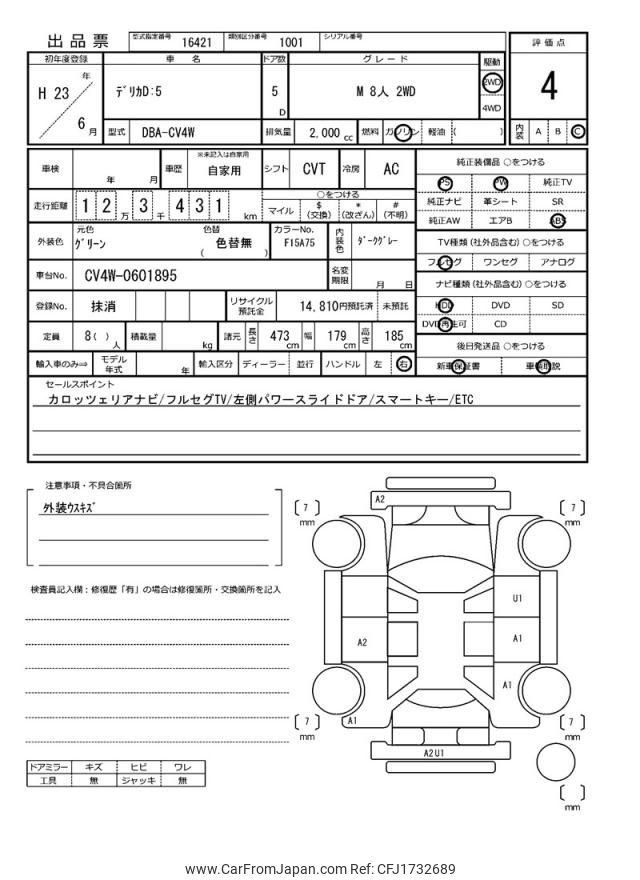 出品票 型式指定番号 16421 類別区分番号 1001 シリアル番号
評価点
4
内装 A B C
初年度登録 車名 ドア数 グレード 駆動
H 23 年 6 月
ﾃﾞﾘｶD:5 5 D M 8人 2WD
2WD
4WD
型式 DBA-CV4W 排気量 2,000 cc 燃料 ガソリン 軽油 ( )
車検 年 月 車歴 ※未記入は自家用 自家用 シフト CVT 冷房 AC
走行距離 12万 3千 431 km
○をつける
マイル $(交換) *(改ざん) #(不明)
外装色 元色 ｸﾞﾘｰﾝ 色替 ( 色替無 ) カラーNo. F15A75 内装色 ﾀﾞｰｸｸﾞﾚｰ
車台No. CV4W-0601895 名変期限 月 日
登録No. 抹消 リサイクル預託金 14,810円預託済 未預託
定員 8( ) 人 積載量 kg 諸元 長さ 473 cm 幅 179 cm 高さ 185 cm
輸入車のみ⇒ モデル年式 年 輸入区分 ディーラー 並行 ハンドル 左 右
純正装備品 ○をつける
PS PW 純正TV
純正ナビ 革シート SR
純正AW エアB ABS
TV種類 (社外品含む) ○をつける
フルセグ ワンセグ アナログ
ナビ種類 (社外品含む) ○をつける
HDD DVD SD
DVD再生可 CD
後日発送品 ○をつける
新車保証書 車輌取説
セールスポイント
カロッツェリアナビ/フルセグTV/左側パワースライドドア/スマートキー/ETC
注意事項・不具合箇所
外装ｳｽｷｽﾞ
検査員記入欄：修復歴「有」の場合は修復箇所・交換箇所を記入
ドアミラー キズ ヒビ ワレ
工具 無 ジャッキ 無
A2
7 mm
7 mm
U1
A2
A1
A1
7 mm
A1
7 mm
A2U1
mm
www.CarFromJapan.com Ref: CFJ1732689